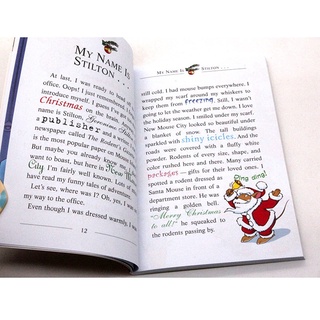 MY NAME IS
STILTON . . .
At last, I was ready to
office. Oops! I just remembered. I
introduce myself. I guess I've got
Christmas on the brain. My
name is Stilton, Geronimo Stilton.
a publisher and a
newspaper called The Rodent's
is the most popular paper on Mouse
But maybe you already knew
want to boast. But here in New
City, I'm fairly well known. Lots of
have read my funny tales of adventure.
Let's see, where was I? Oh, yes, I was
my way to the office.
Even though I was dressed warmly, I
12
MY NAME IS STILTON . . .
still cold. I had mouse bumps everywhere. I
wrapped my scarf around my whiskers to
keep them from freezing. Still, I wasn't
going to let the weather get me down. I love
the holiday season. I smiled under my scarf.
New Mouse City looked so beautiful under
a blanket of snow. The tall buildings
sparkled with shiny icicles. And the
roads were covered with a fluffy white
powder. Rodents of every size, shape, and
color rushed here and there. Many carried
packages — gifts for their loved ones. I
spotted a rodent dressed as
Santa Mouse in front of a
department store. He was
ringing a golden bell.
"Merry Christmas
to all!" he squeaked to
the rodents passing by.
Ding ding!